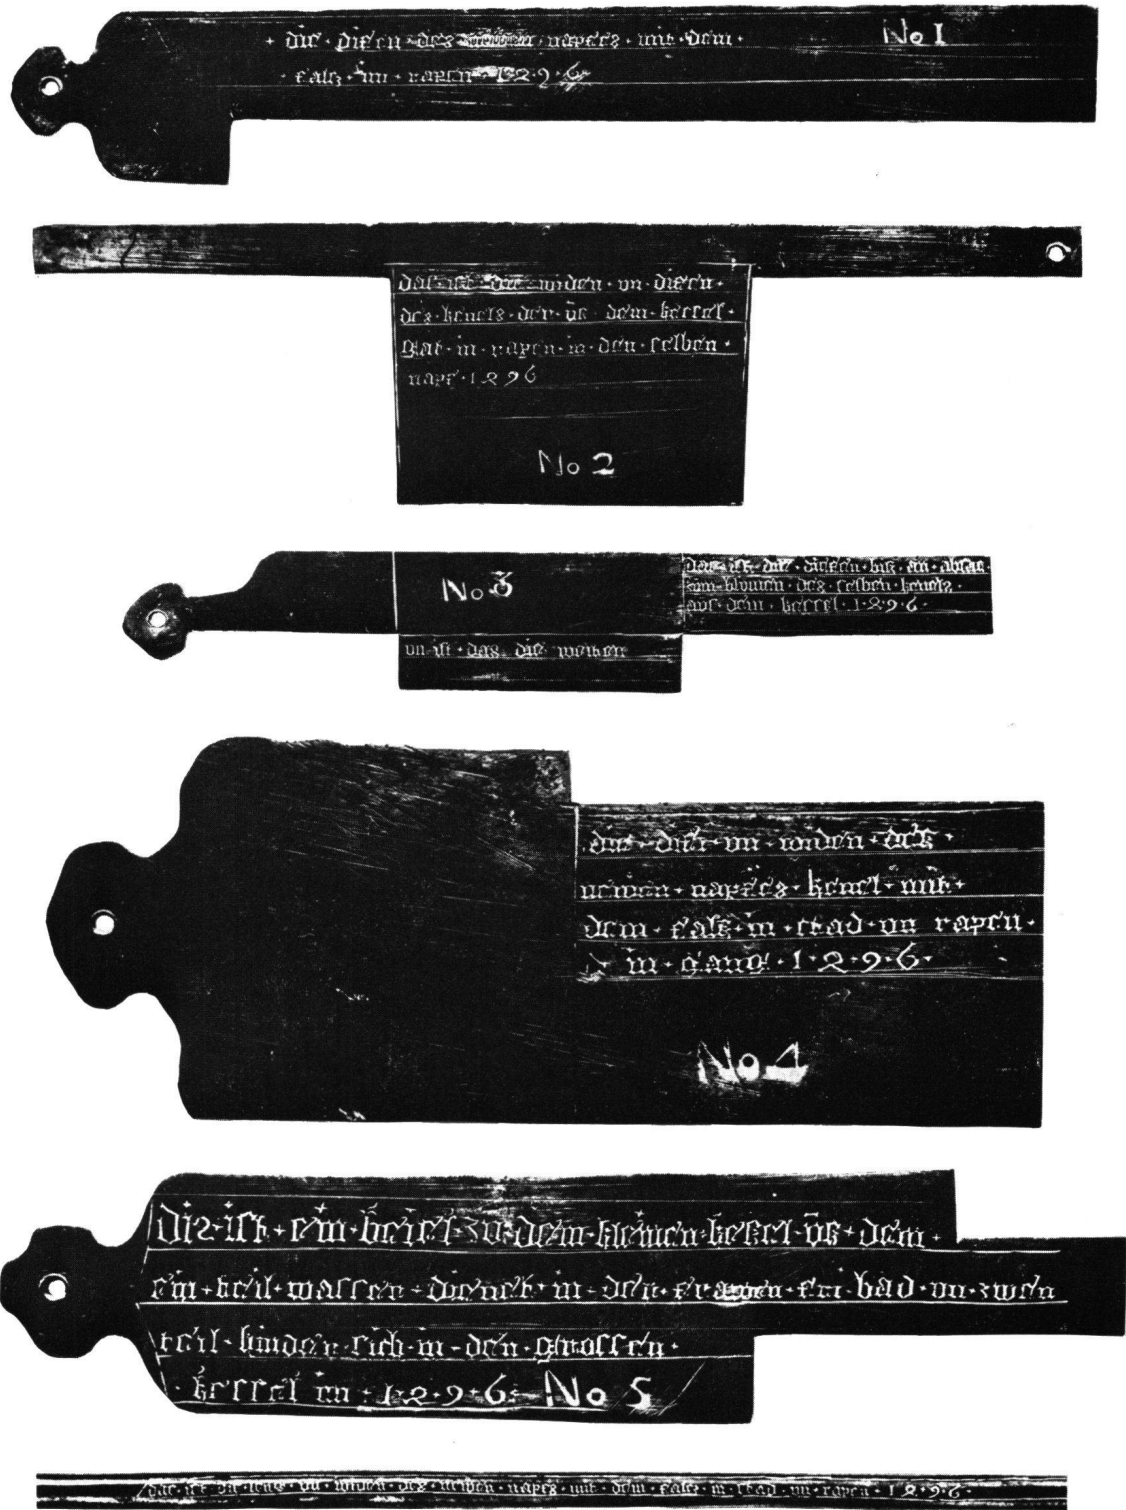 die · diken · des · newen · napfes · mit · dem · No 1
falz · im · rapen · 1 · 2 · 9 · 6 ·
das · ist · die · widen · un · diken ·
des · kenels · der · us · dem · kessel ·
gat · in · rapen · in · den · selben ·
napf · 1 2 9 6
No 2
das · ist · die · dicken · bis · an · absac ·
blumen · des · selben · kenels ·
aus · dem · kessel · 1 · 2 · 9 · 6 ·
No 3
un · ist · das · die · weiten
die · dik · un · widen · des ·
newen · napfes · kenel · mit ·
dem · falz · in · stad · un rapen ·
in · gang · 1 · 2 · 9 · 6 ·
No 4
Dis · ist · ein · keisel · zu · dem · kleinen · kessel · us · dem ·
ein · teil · wasser · dienet · in · der · frawen · fri · bad · un · zwen
teil · hinder · sich · in · den · grossen ·
kessel im · 1 · 2 · 9 · 6 · No 5
das · ist · die · leng · un · widen · des · newen · napfes · mit · dem · falz · in · stad · un · rapen · 1 · 2 · 9 · 6 ·